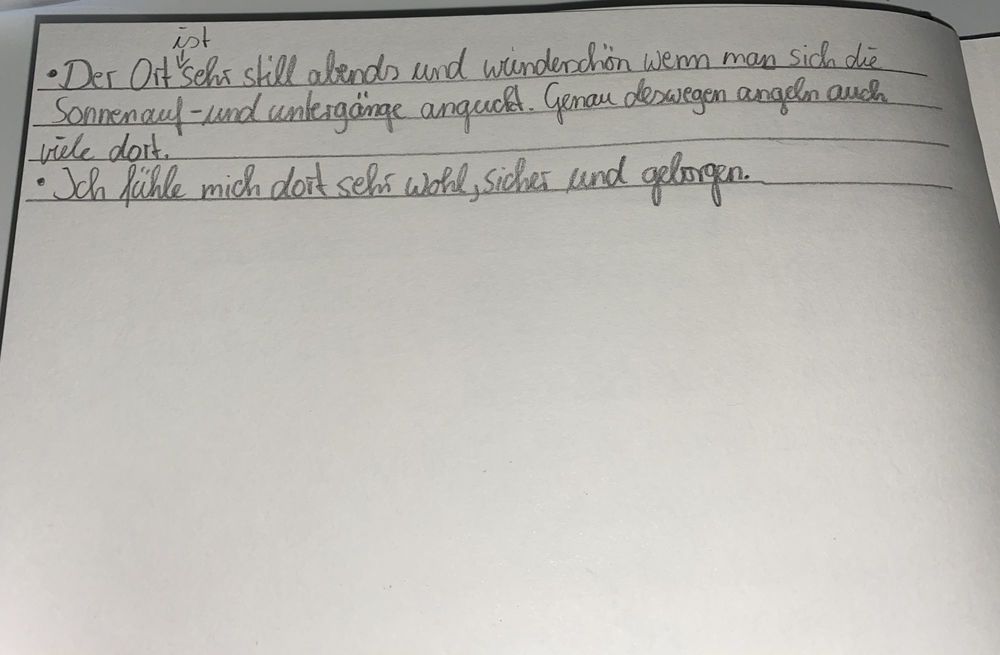 ist
• Der Ort sehr still abends und wunderschön wenn man sich die
Sonnenauf-und untergänge anguckt. Genau deswegen angeln auch
viele dort.
• Ich fühle mich dort sehr wohl, sicher und geborgen.